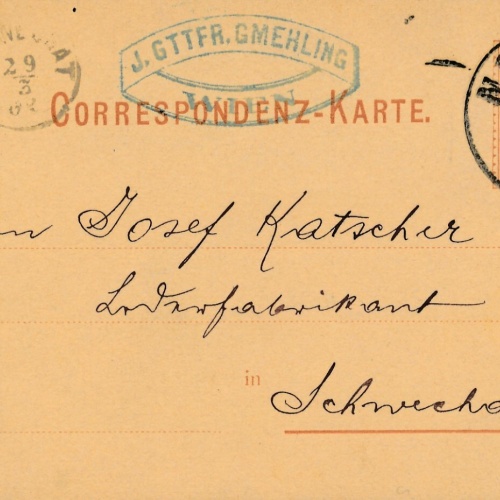 J. GTTFR. GMEHLING
WIEN
29
3
CORRESPONDENZ-KARTE.
Josef Katscher
Lederfabrikant
in
Schwecha